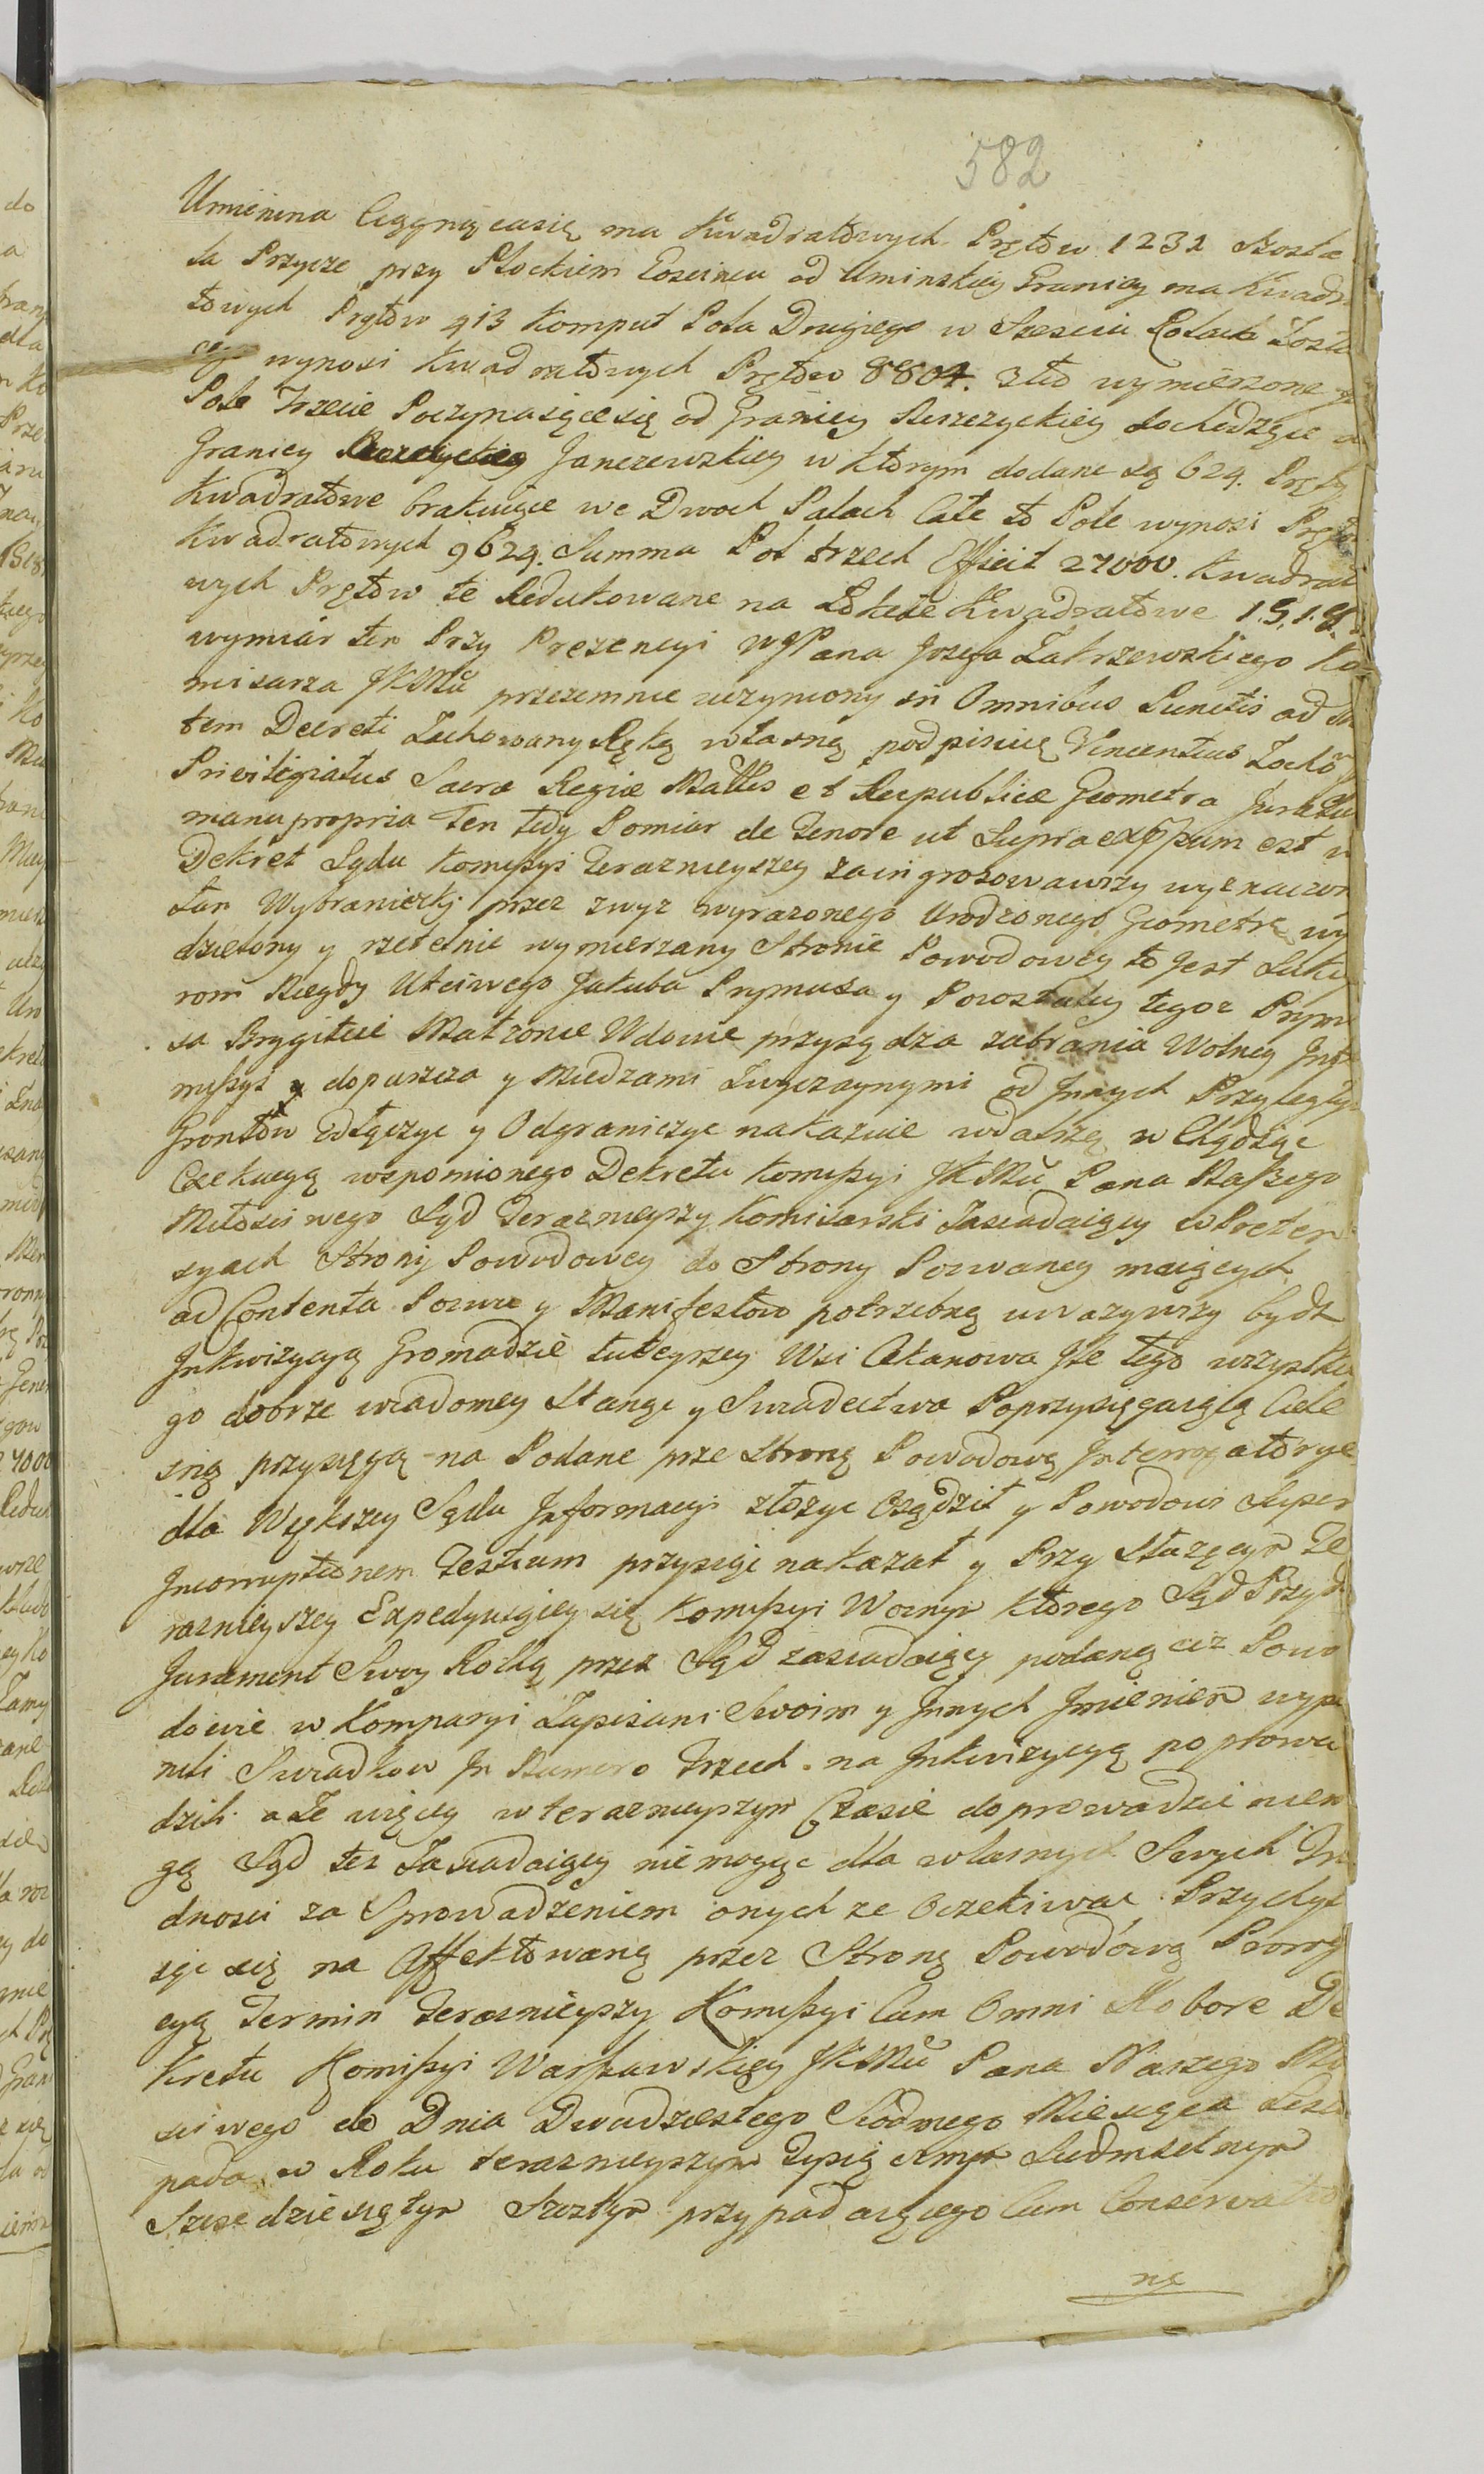 582
Uminina Ciągnącasię ma Kwadratowych Prętow 1232 Szosta
sa Przycze przy Płockiem Goscincu od Uminskiey Granicy ma Kwadra
towych Prętow 413 Komput Pola Drugiego w Szesciu Polach
wynosi Kwadratowych Prętow 8804. wymierzone
Pole Trzecie Poczynaiącesię od Granicy dochodzące
Granicy Janczewskiey w ktorym dodane są 629. Pręty
Kwadratowe brakuiące we Dwoch Polach Całe to Pole wynosi Pręto
Kwadratowych 9629. Summa Pol trzech Efficit 27000. Kwadrato
wych Prętow te Redukowane na Łokcie Kwadratowe
wymiar ten Przy Prezencyi WJPana Jozefa Zakrzewskiego Ko
misarza JKMći przezemnie uczyniony in Omnibus Punctis ad
tem Decreti Zachowany Ręką własną podpisuię Vincentius
Privilegiatus Sacræ Regiæ Mattis et Reipublicæ Geometra Juratus
manu propria Ten tedy Pomiar de Tenore ut Supra expressum est w
Dekret Sądu Kommissyi Teraznieyszey zaingrosowawszy wyznaczon
Łan Wybraniecki przez zwyz wyrazonego Urodzonego Geometrę wy
dzielony y rzetelnie wymierzany Stronie Powodowey to Jest Sukce
rom Niegdy Utciwego Jakuba Prymusa y Pozostałey tegoz Prymu
sa Brygittcie Matronie Wdowie przysądza zabrania Wolney Inter
missyi y dopuszcza y Miedzami Zwyczaynymi od Innych Przyległych
Grontow Odłączyc y Odgraniczyc nakazuie wdalszą w Chądząc
Exekucyą wspomionego Dekretu Kommissyi JKMći Pana Naszego
Miłosciwego Sąd Teraznieyszy Komisarski Zasiadaiący w Preten
syach Strony Powodowey do Strony Pozwaney maiących
ad Contenta Pozwu y Manifestow potrzebną uwazywszy bydz
Inkwizycyą Gromadzie tuteyszey Wsi Cekanowa Jze tego wszystkie
go dobrze wiadomey Stange y Swiadectwa Poprzysięgaiąlą Ciele
sną przysięgą na Podane prze Stroną Powodową Interrogatorye
dla Większey Sądu Informacyi złozyc Osądził y Powodowi Super
Incorruptionem Testium przysiegi nakazał y Przy Stazącym Te
raznieyszey Expedyuiącey się Kommissyi Woznym ktorego Sąd Przyd
Jurament Swoy Rothą przez Sąd zasiadaiący podaną ciz Powo
dowie w Komparycyi Zapisani Swoim y Innych Jmieniem wype
nili Swiadkow In Numero Trzech na Inkwizycyą poprowa
dzili aze więcey w teraznieyszym Czasie doprowadzic niem
gą Sąd tez Zasiadaiący niemogąc dla własnych Swych Tru
dnosci za Sprowadzeniem onych ze Oczekiwac Przychyl
aiąc się na Affektowaną przez Stroną Powodową Prorog
cyą Termin Teraznieyszy Kommissyi Cum Omni Robore De
kretu Kommissyi Warszawskiey JKMći Pana Naszego Mło
sciwego do Dnia Dwudziestego Siodmego Miesiąca Listo
pada w Roku teraznieyszym Tysiącznym Siedmsetnym
Szesc dziesiątym Szostym przypadaiącego Cum Conservatio
ne